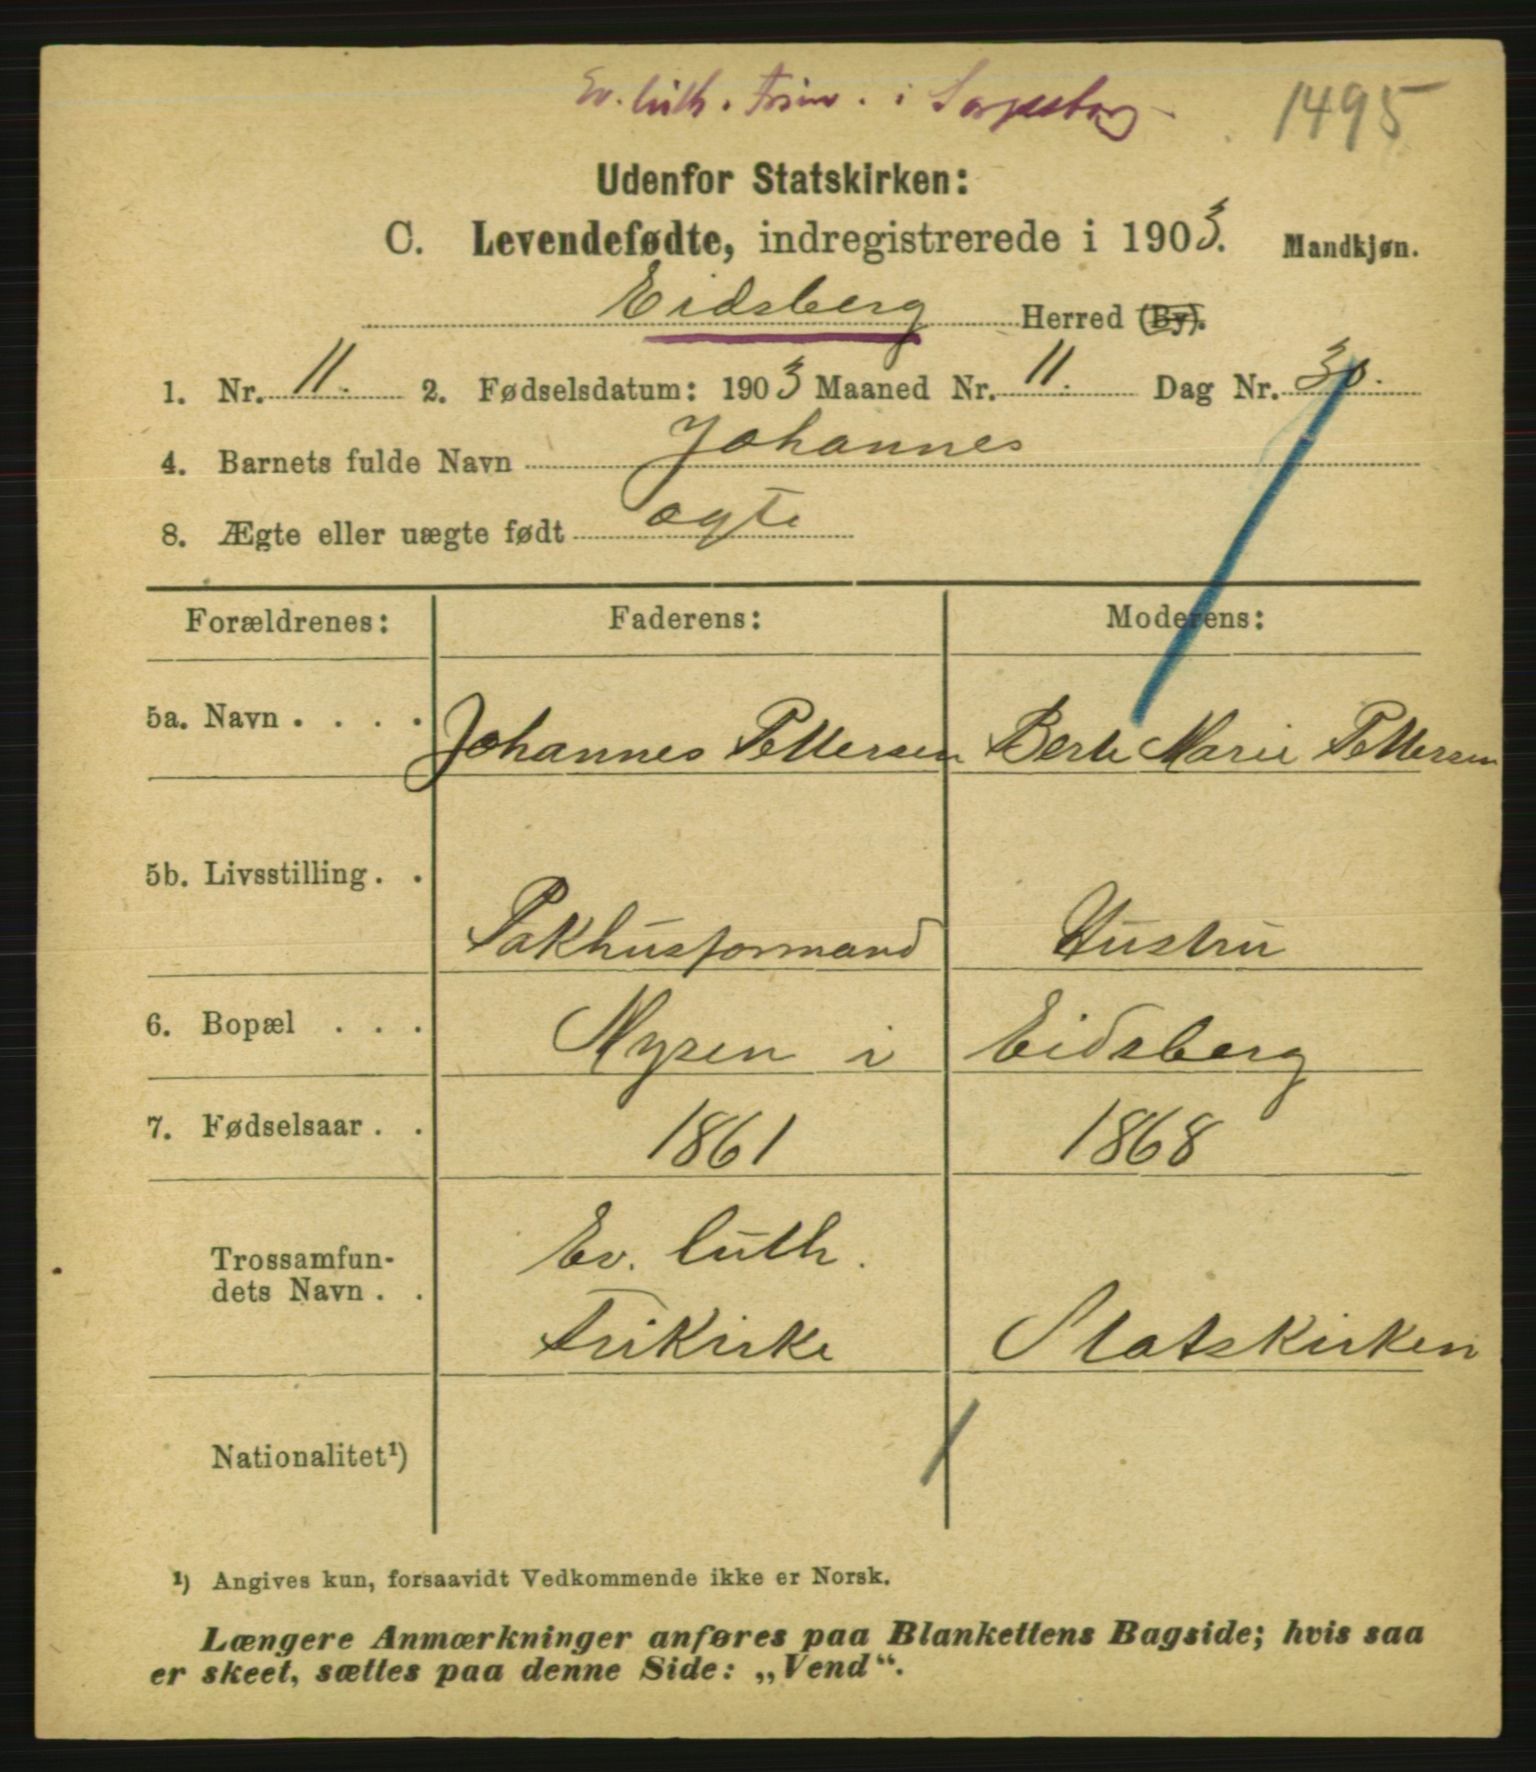 Ev. luth. i Sarpsborg
1495
Udenfor Statskirken:
C. Levendefødte, indregistrerede i 1903. Mandkjøn.
Eidsberg Herred (By).
1. Nr. 11. 2. Fødselsdatum: 1903 Maaned Nr. 11. Dag Nr. 30.
4. Barnets fulde Navn Johannes
8. Ægte eller uægte født ægte
Forældrenes: Faderens: Moderens:
5a. Navn . . . . Johannes Pettersen Berte Marie Pettersen
5b. Livsstilling . . Pakhusformand Hustru
6. Bopæl . . . Mysen i Eidsberg
7. Fødselsaar . . 1861 1868
Trossamfun- Ev. luth.
dets Navn . . Frikirke Statskirken
Nationalitet¹)
¹) Angives kun, forsaavidt Vedkommende ikke er Norsk.
Længere Anmærkninger anføres paa Blankettens Bagside; hvis saa
er skeet, sættes paa denne Side: „Vend“.